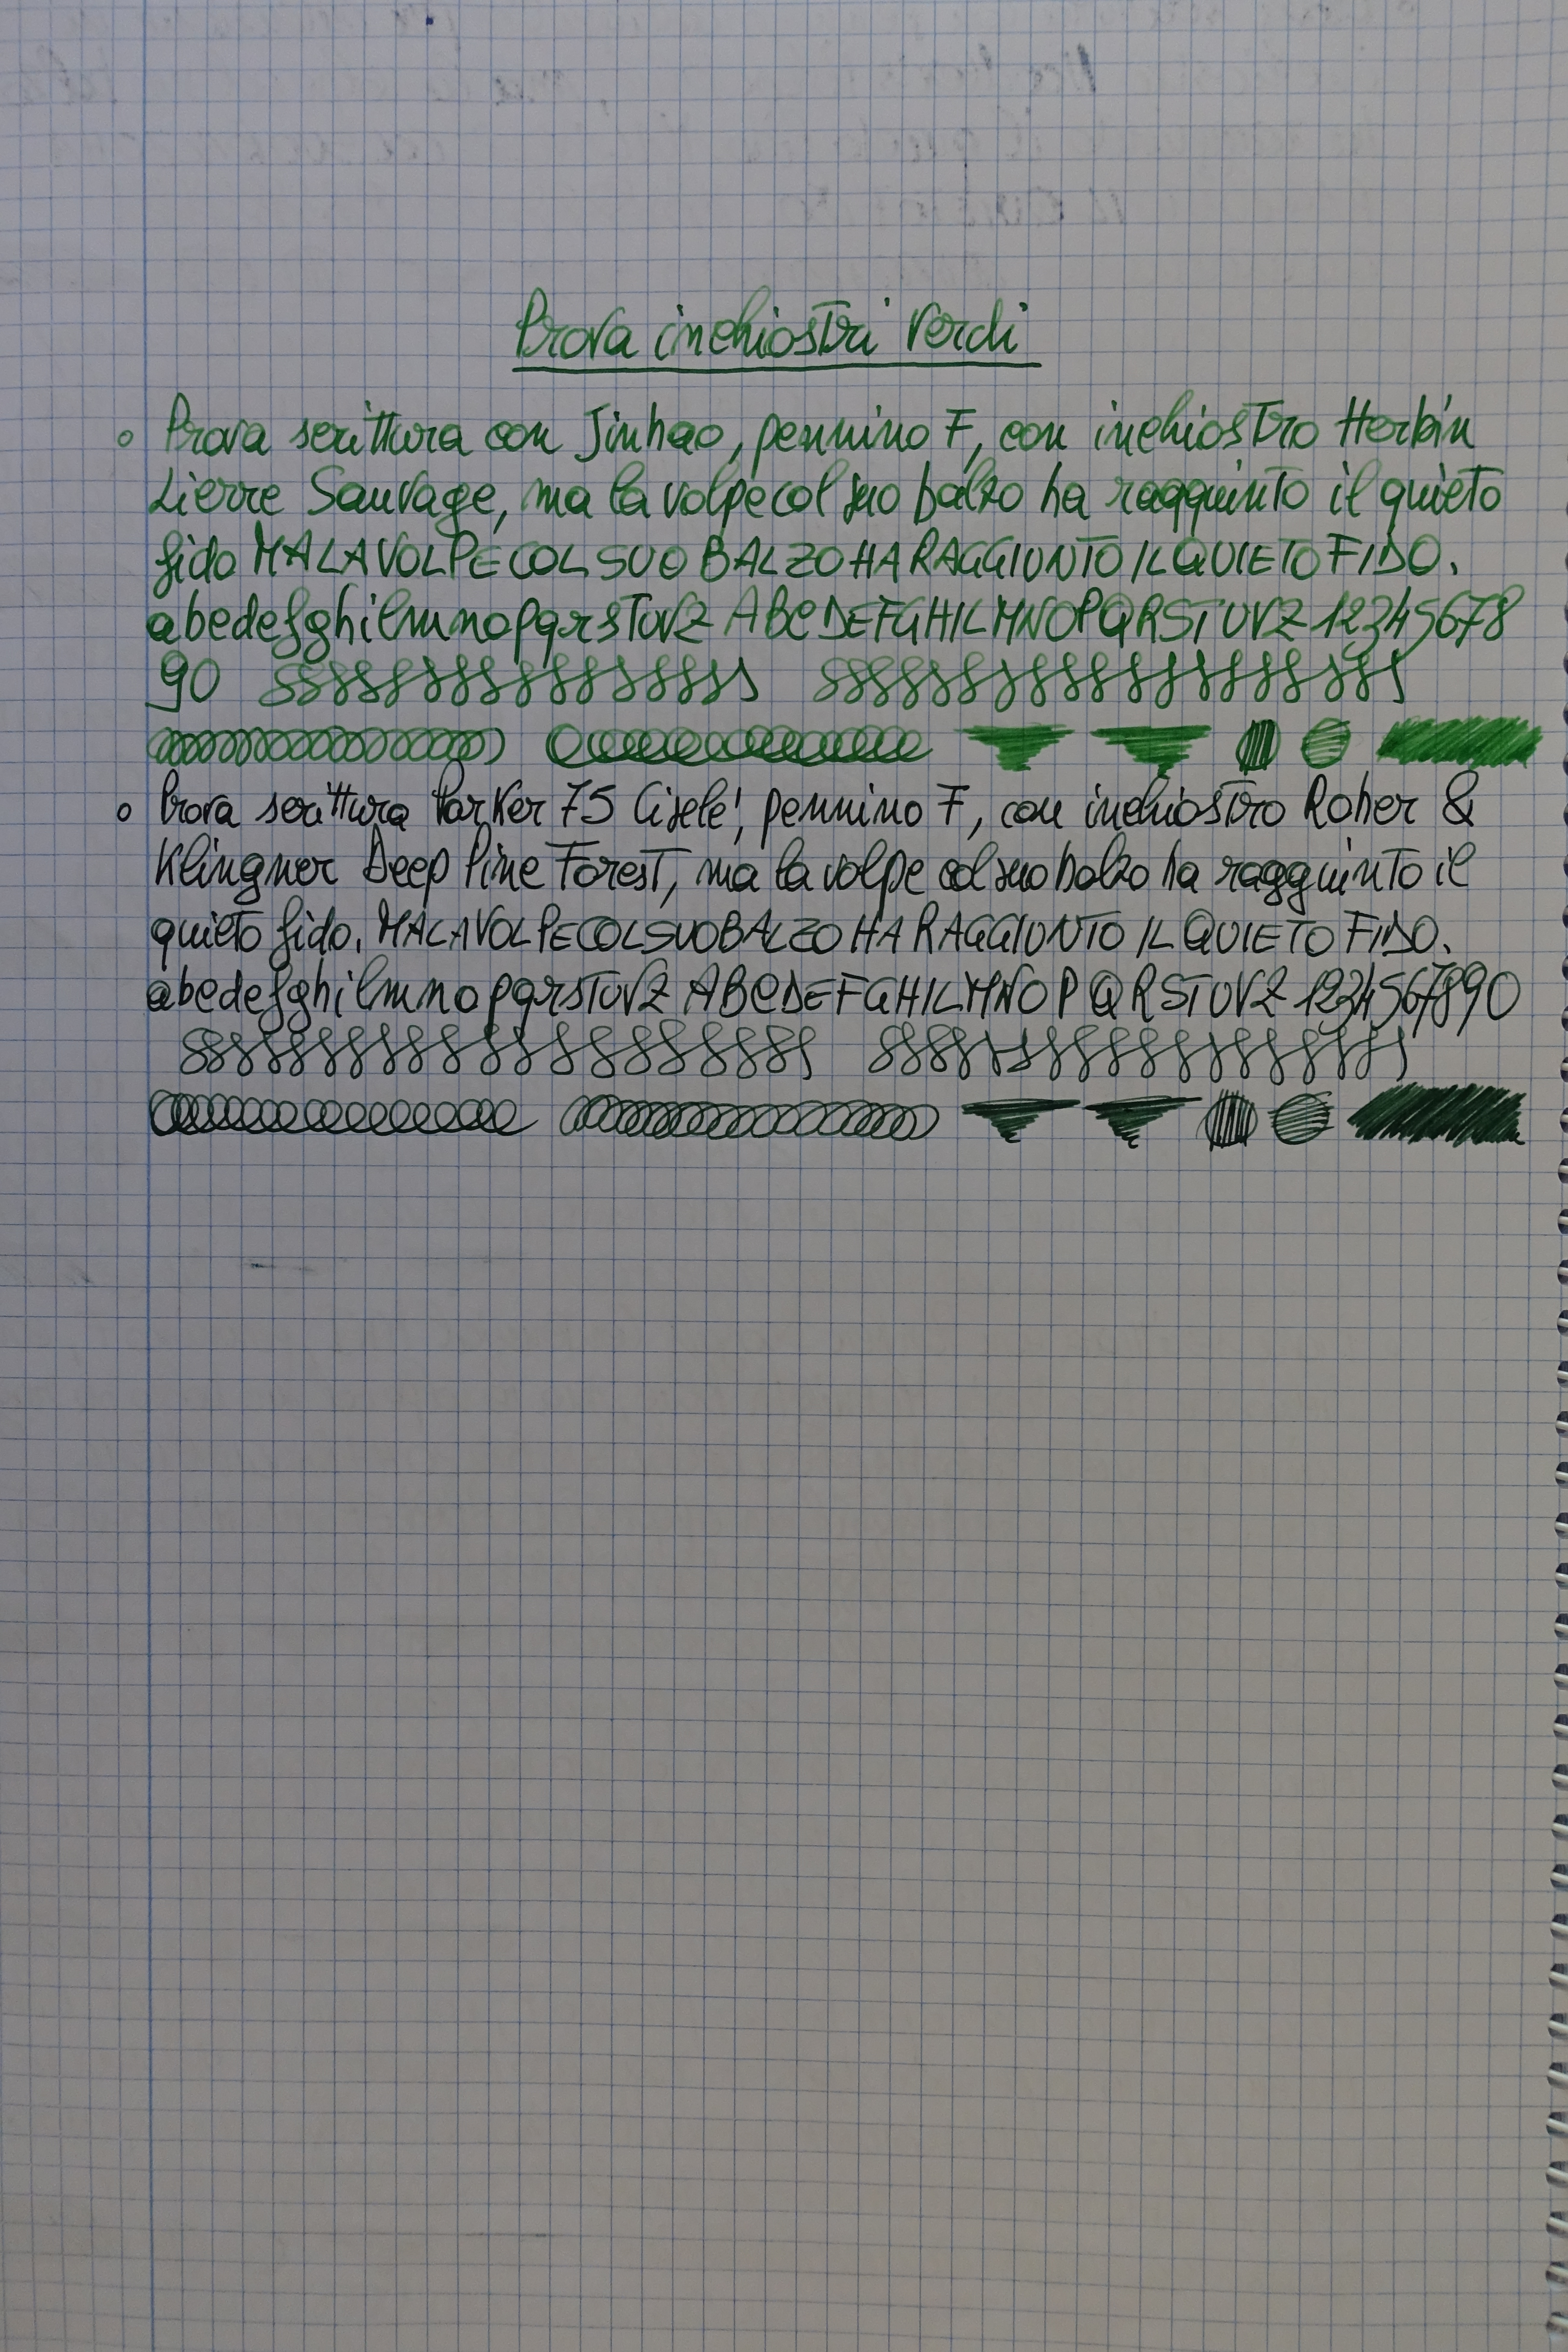 Prova inchiostri verdi
Prova scrittura con Jinhao, pennino F, con inchiostro Herbin
Lierre Sauvage, ma la volpe col suo balzo ha raggiunto il quieto
fido MA LA VOLPE COL SUO BALZO HA RAGGIUNTO IL QUIETO FIDO.
abcdefghilmnopqrstuvz ABCDEFGHILMNOPQRSTUVZ 12345678
90
Prova scrittura Parker 75 Ciselé, pennino F, con inchiostro Roher &
Klingner Deep Pine Forest, ma la volpe col suo balzo ha raggiunto il
quieto fido. MA LA VOLPE COL SUO BALZO HA RAGGIUNTO IL QUIETO FIDO.
abcdefghilmnopqrstuvz ABCDEFGHILMNOPQRSTUVZ 1234567890